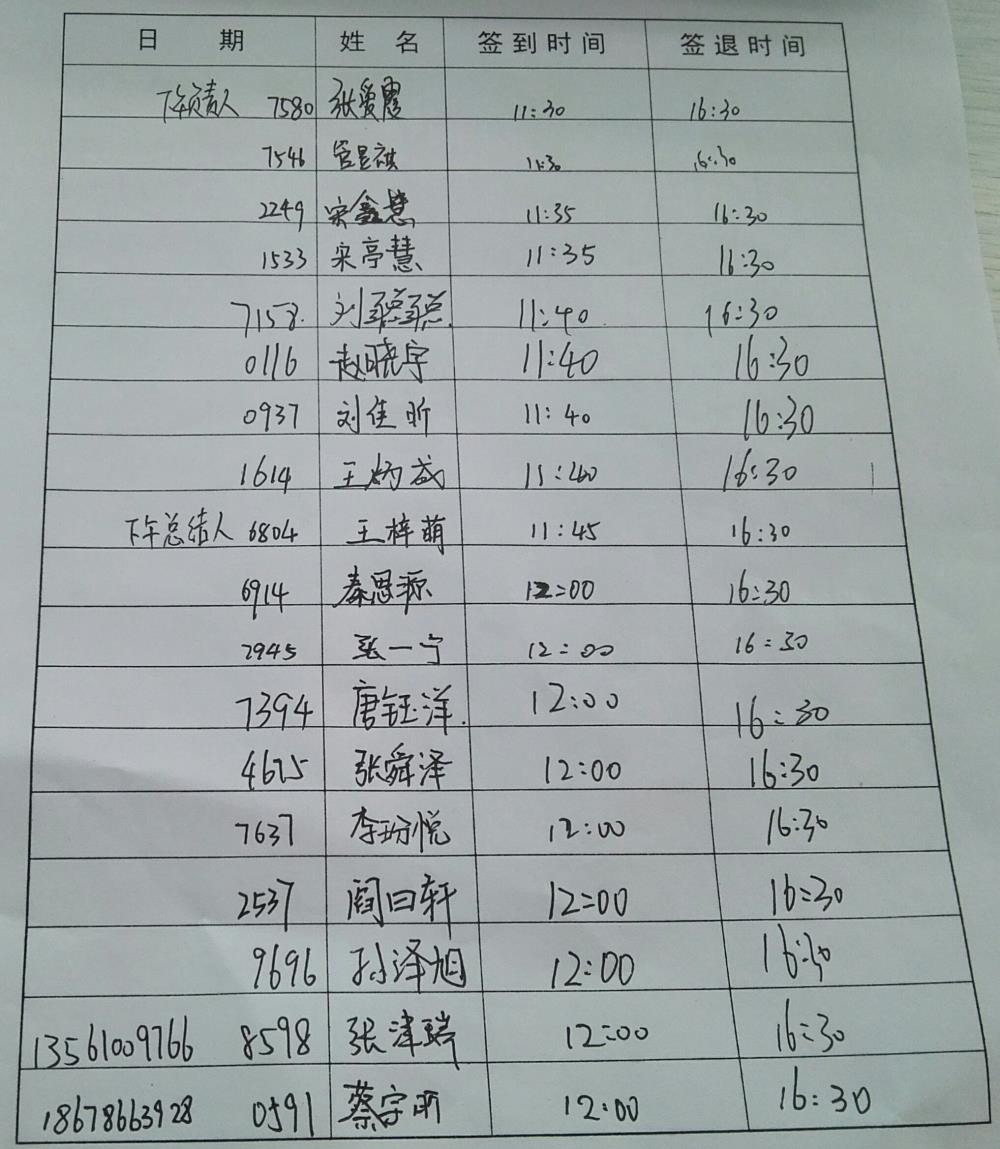 日 期 姓 名 签到时间 签退时间
下午负责人 7580 张爱霞 11:30 16:30
7546 管呈祺 11:30 16:30
2249 宋鑫慧 11:35 16:30
1533 宋亭慧 11:35 16:30
7158. 刘聪聪. 11:40 16:30
0116 赵晓宇 11:40 16:30
0937 刘佳昕 11:40 16:30
1614 王炳成 11:40 16:30
下午总结人 6804 王梓萌 11:45 16:30
6914 秦思源 12:00 16:30
2945 张一宁 12:00 16:30
7394 唐钰洋. 12:00 16:30
4675 张舜泽 12:00 16:30
7637 李玢悦 12:00 16:30
2537 阎曰轩 12:00 16:30
9696 孙泽旭 12:00 16:30
13561009766 8598 张津瑞 12:00 16:30
18678663928 0591 蔡宇昕 12:00 16:30